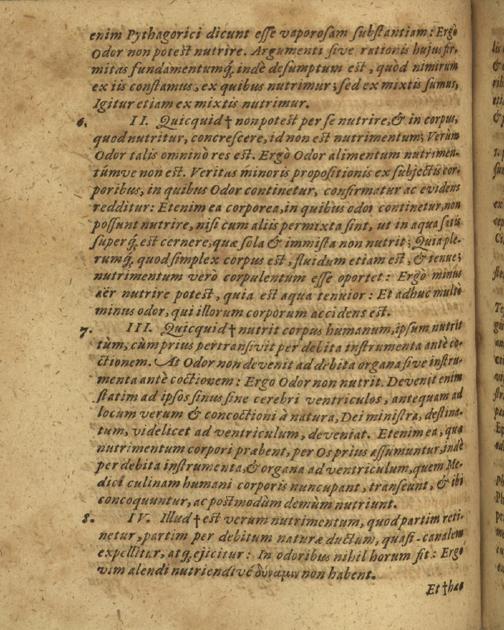 enim Pythagorici dicunt esse vaporosam substantiam: Ergò
Odor non potest nutrire. Argumenti sive rationis hujus fir-
mitas fundamentumq́; inde desumptum est, quòd nimirum
ex iis constamus, ex quibus nutrimur; sed ex mixtis sumus,
Igitur etiam ex mixtis nutrimur.
6. II. Quicquid † non potest per se nutrire, & in corpus,
quod nutritur, concrescere, id non est nutrimentum; Verùm
Odor talis omninò res est. Ergò Odor alimentum nutrimen-
túmve non est. Veritas minoris propositionis ex subjectis cor-
poribus, in quibus Odor continetur, confirmatur ac evidens
redditur: Etenim ea corporea, in quibus odor continetur, non
possunt nutrire, nisi cum aliis permixta sint, ut in aqua satis
superq́; est cernere, quæ sola & immista non nutrit; Quia ple-
rumq́; quod simplex corpus est, fluidum etiam est, & tenue;
nutrimentum verò corpulentum esse oportet: Ergò minùs
aër nutrire potest, quia est aqua tenuior: Et adhuc multò
minus odor, qui illorum corporum accidens est.
7. III. Quicquid † nutrit corpus humanum, ipsum nutrit
tùm, cùm prius pertransivit per debita instrumenta antè co-
ctionem. At Odor non devenit ad debita organa sive instru-
menta antè coctionem: Ergò Odor non nutrit. Devenit enim
statim ad ipsos sinus sine cerebri ventriculos, antequam ad
locum verum & concoctioni à natura, Dei ministra, destina-
tum, videlicet ad ventriculum, deveniat. Etenim ea, quæ
nutrimentum corpori præbent, per Os prius assumuntur, inde
per debita instrumenta, & organa ad ventriculum, quem Me-
dici culinam humani corporis nuncupant, transeunt, & ibi
concoquuntur, ac postmodùm demùm nutriunt.
8. IV. Illud † est verum nutrimentum, quod partim reti-
netur, partim per debitum naturæ ductum, quasi-canalem
expellitur, atq́; ejicitur: In odoribus nihil horum fit: Ergò
vim alendi nutriendive δύναμιν non habent.
Et † hæc